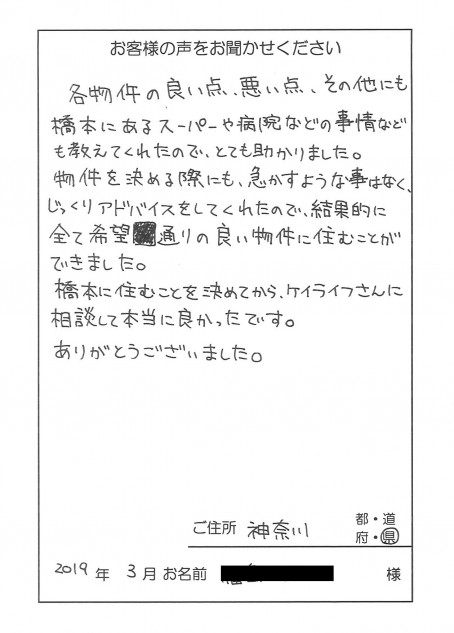 お客様の声をお聞かせください
各物件の良い点、悪い点、その他にも
橋本にあるスーパーや病院などの事情など
も教えてくれたので、とても助かりました。
物件を決める際にも、急かすような事はなく、
じっくりアドバイスをしてくれたので、結果的に
全て希望通りの良い物件に住むことが
できました。
橋本に住むことを決めてから、ケイライフさんに
相談して本当に良かったです。
ありがとうございました。
ご住所 神奈川 都・道
府・県
2019年 3月 お名前 様